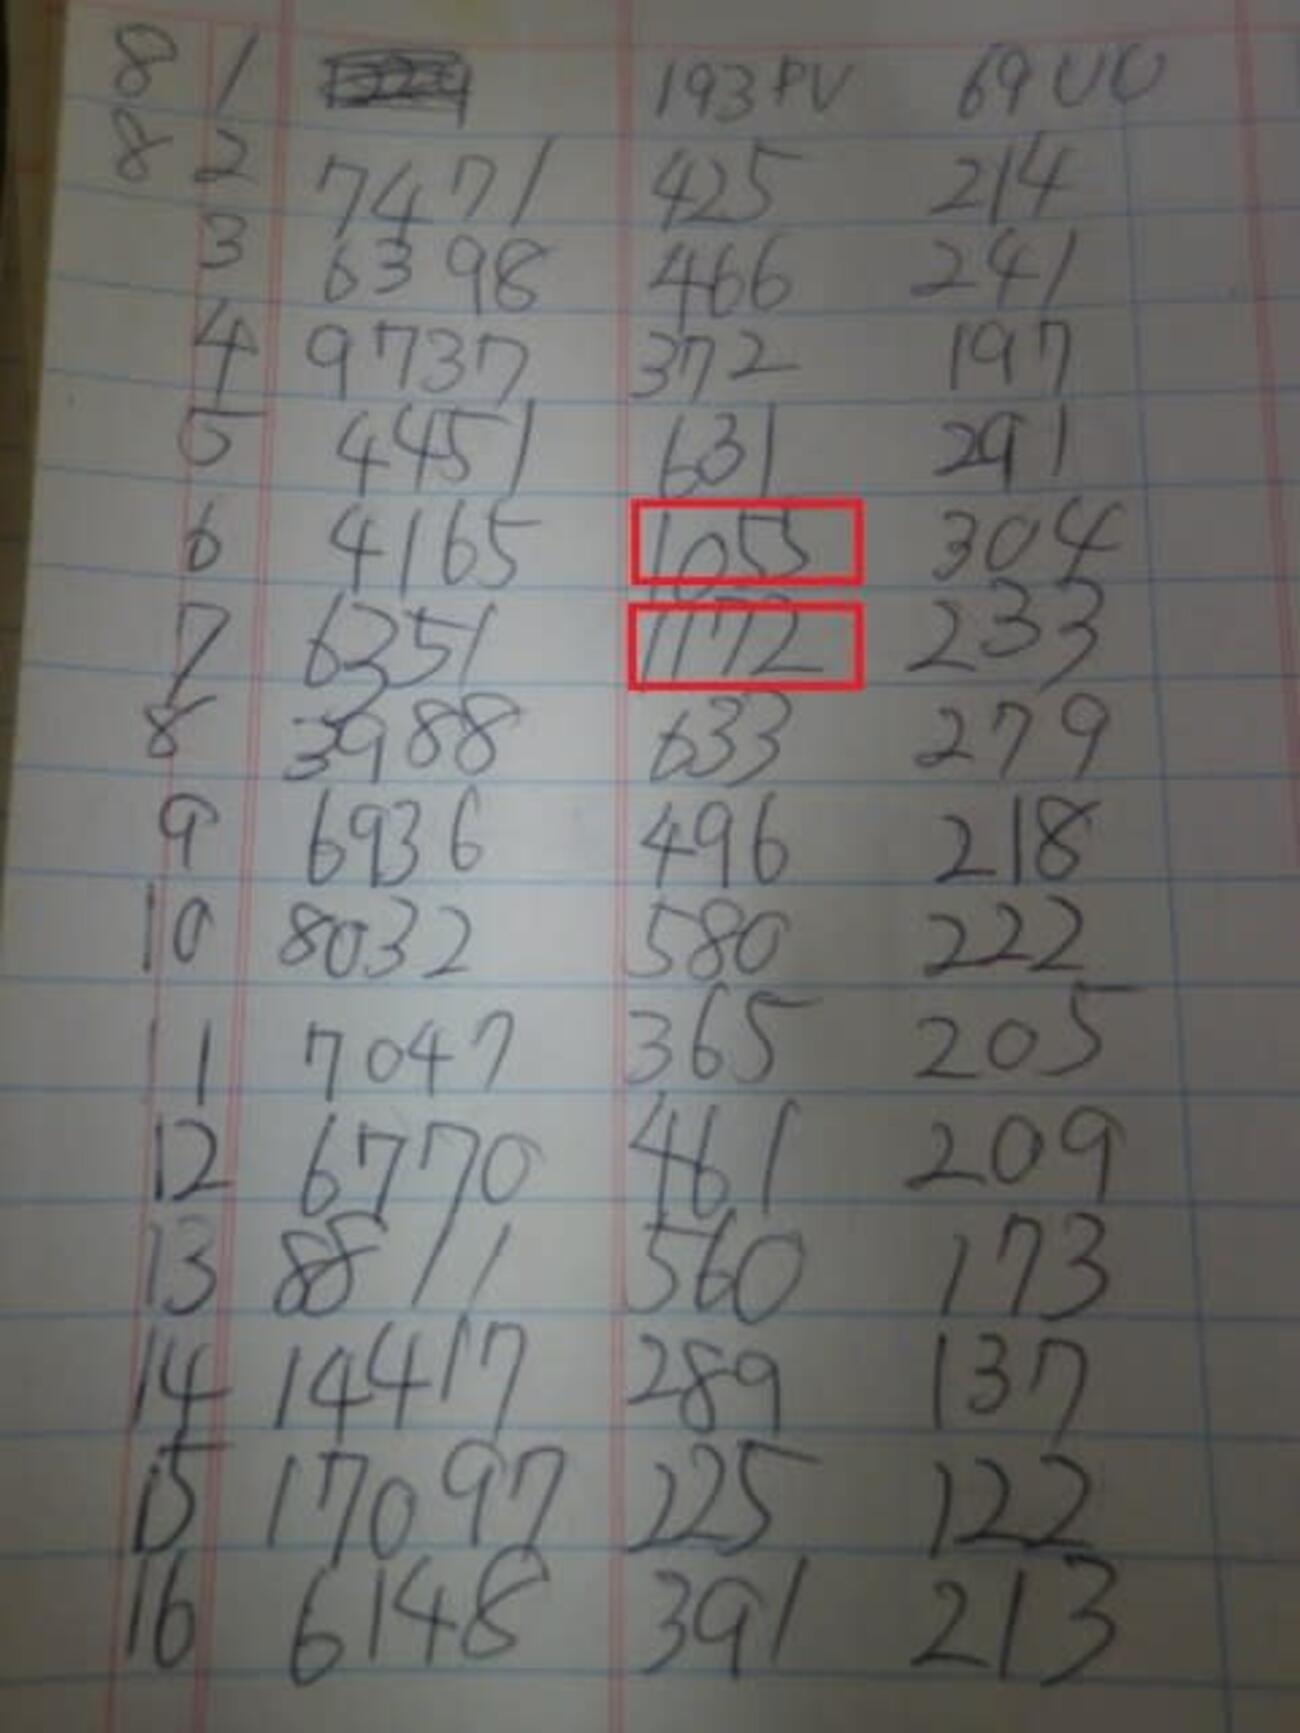 8 1 193PV 69UU
8 2 7471 425 214
3 6398 466 241
4 9737 372 197
5 4451 631 291
6 4165 1055 304
7 6351 1172 233
8 3988 633 279
9 6936 496 218
10 8032 580 222
11 7047 365 205
12 6770 461 209
13 8811 560 173
14 14417 289 137
15 17097 225 122
16 6148 391 213